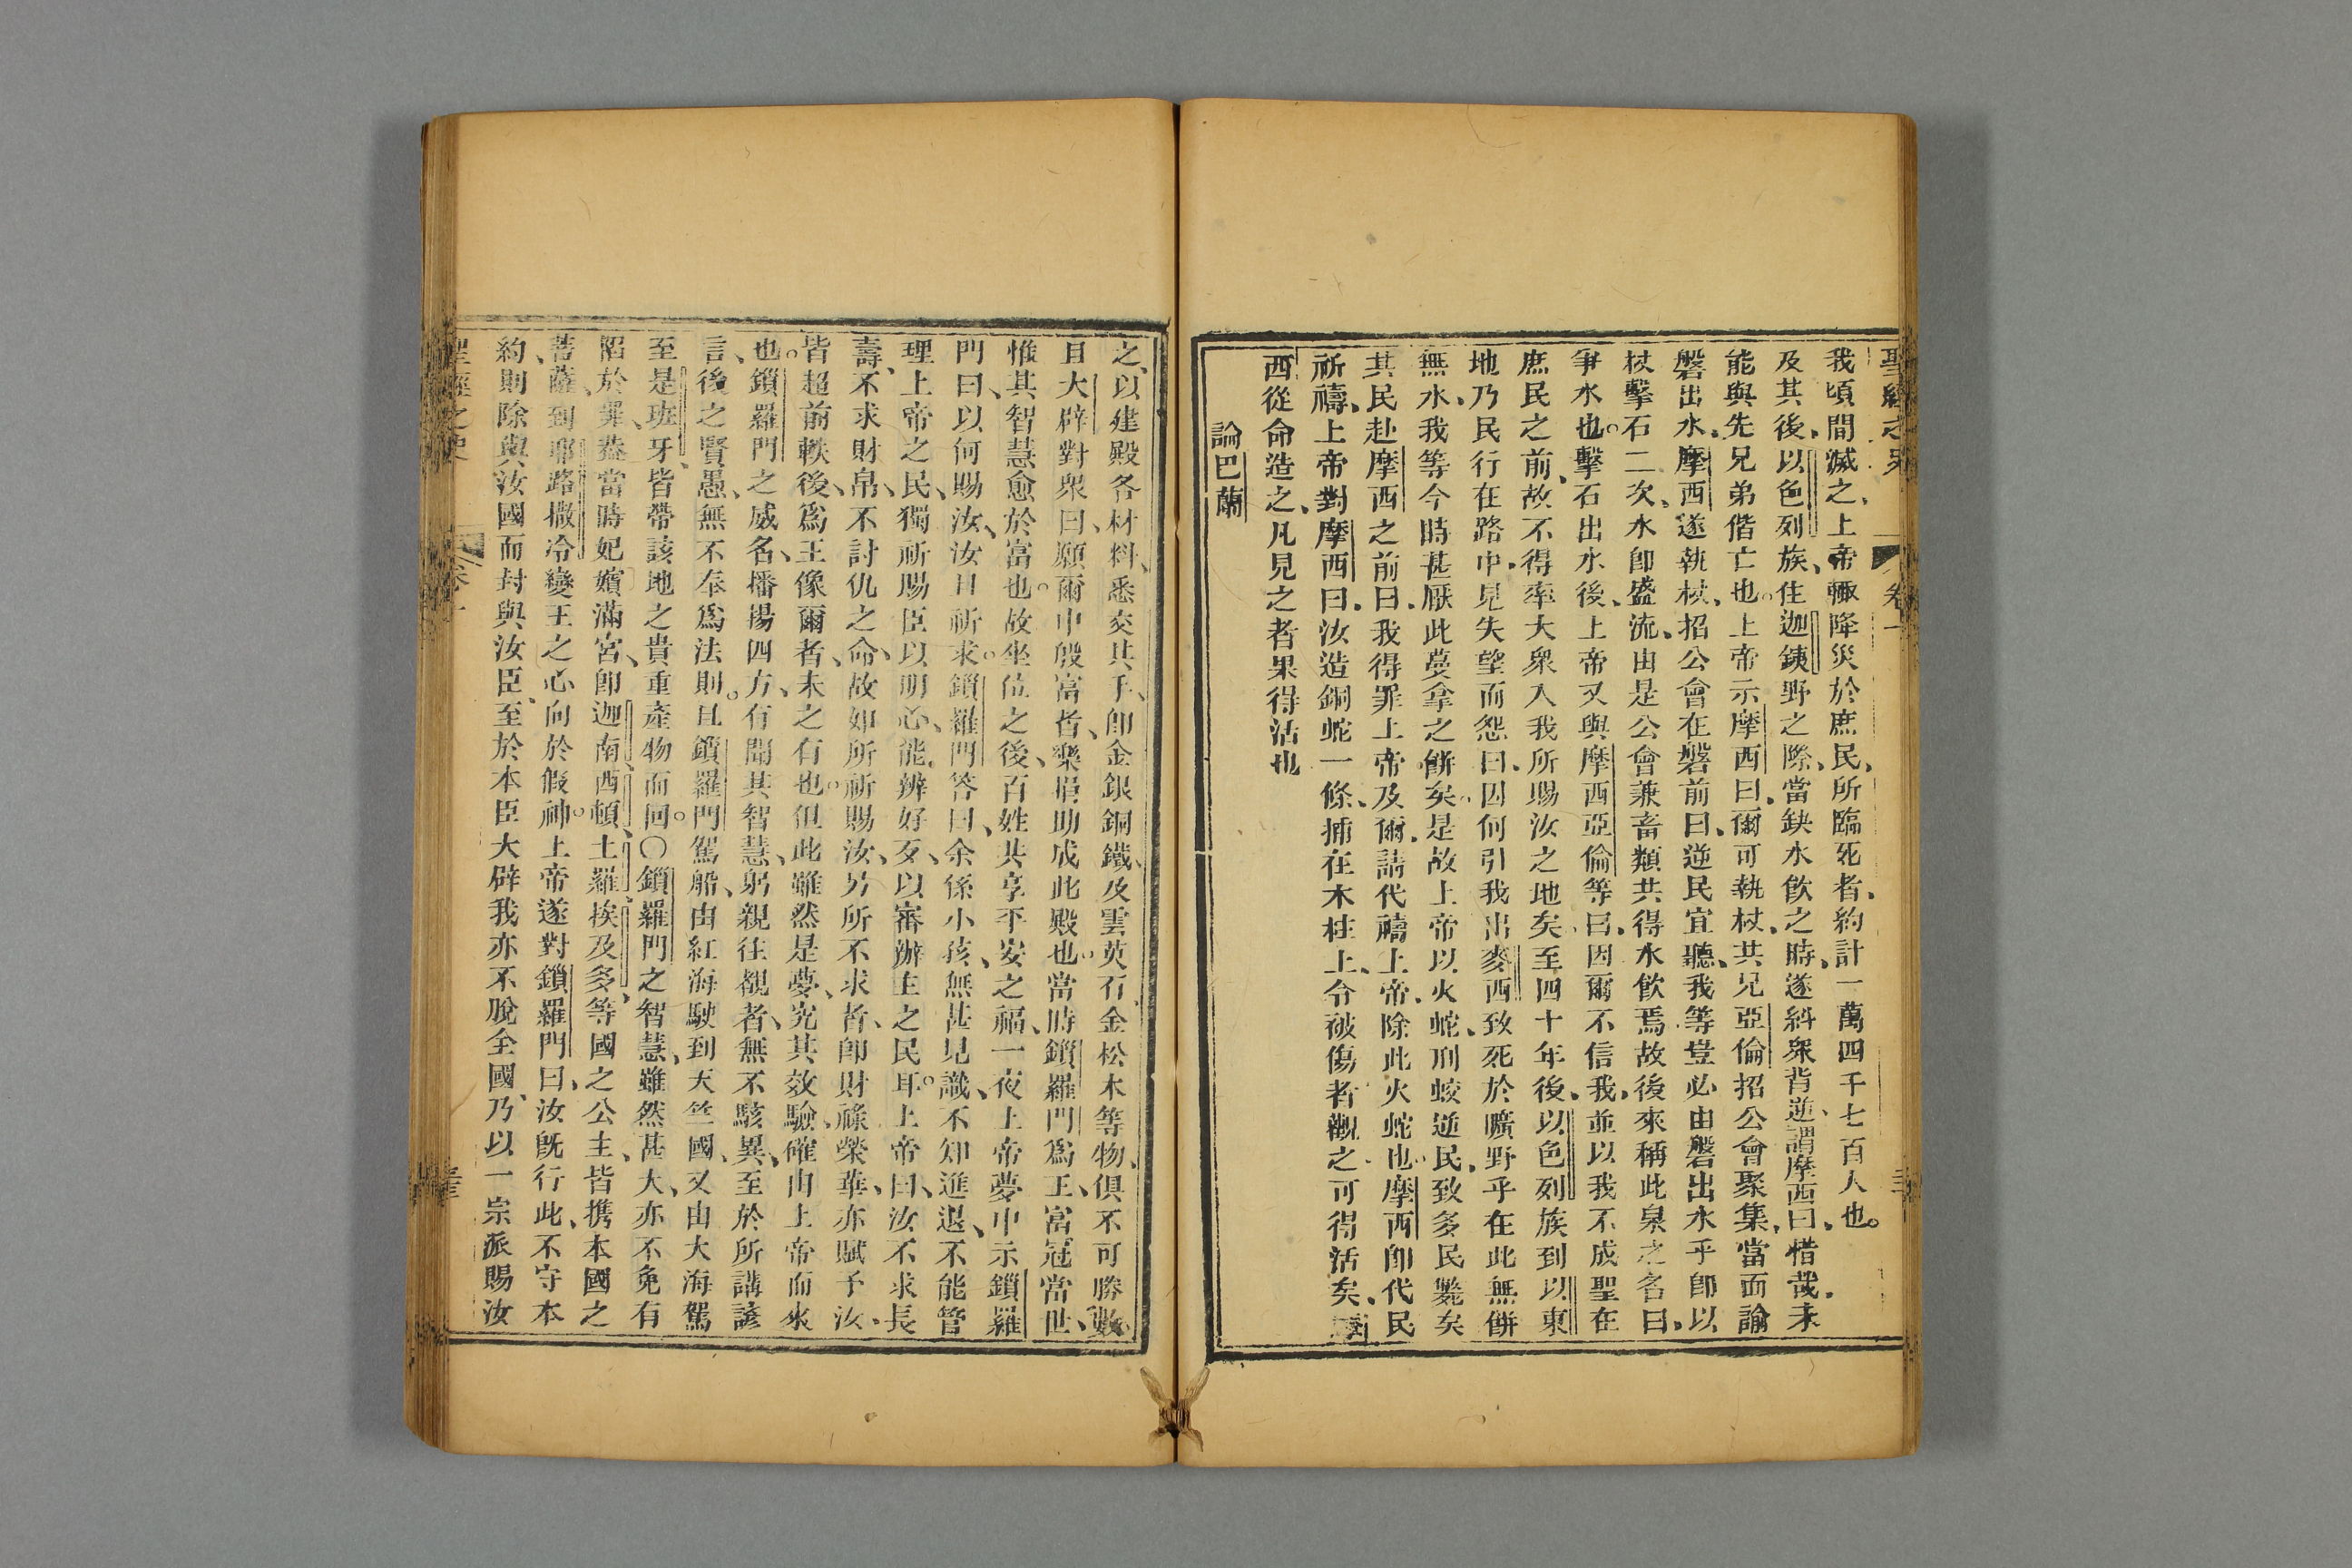 聖經之史 卷一
我頃間滅之、上帝輙降災於庶民、所臨死者、約計一萬四千七百人也。
及其後、以色列族、住迦銕野之際、當缺水飲之時、遂糾衆背逆、謂摩西曰、惜哉、未
能與先兄弟偕亡也。上帝示摩西曰、爾可執杖、共兄亞倫招公會聚集、當面諭
磐出水、摩西遂執杖、招公會在磐前曰、逆民宜聽、我等豈必由磐出水乎、卽以
杖擊石二次、水卽盛流、由是公會兼畜類共得水飲焉、故後來稱此泉之名曰、
爭水也。擊石出水後、上帝又與摩西亞倫等曰、因爾不信我、並以我不成聖在
庶民之前、故不得率大衆入我所賜汝之地矣、至四十年後、以色列族到以東
地、乃民行在路中、見失望而怨曰、因何引我出麥西致死於曠野乎、在此無餅
無水、我等今時甚厭此蔓拿之餅矣。是故上帝以火蛇、刑蛟逆民、致多民斃矣
其民赴摩西之前曰、我得罪上帝及爾、請代禱上帝、除此火蛇也。摩西卽代民
祈禱、上帝對摩西曰、汝造銅蛇一條、捕在木柱上、令被傷者觀之可得活矣、摩
西從命造之、凡見之者果得活也
論巴蘭
之、以建殿各材料、悉交其子、卽金銀銅鐵、及雲英石、金松木等物、俱不可勝數、
且大辟對衆曰、願爾中殷富者、樂捐助成此殿也。當時鎖羅門爲王、富冠當世、
惟其智慧愈於富也。故坐位之後、百姓共享平安之福、一夜上帝夢中示鎖羅
門曰、以何賜汝、汝且祈求。鎖羅門答曰、余係小孩、無甚見識、不知進退、不能管
理上帝之民、獨祈賜臣以明心、能辨好歹、以審辦主之民耳。上帝曰、汝不求長
壽、不求財帛、不討仇之命、故如所祈賜汝、另所不求者、卽財祿榮華、亦賦予汝、
皆超前軼後、爲王像爾者、未之有也。但此雖然是夢、究其效驗、確由上帝而來
也。鎖羅門之威名、播揚四方、有聞其智慧、躬親往覩者、無不駭異、至於所講諺
言、後之賢愚、無不奉爲法則。且鎖羅門駕船、由紅海駛到天竺國、又由大海駕
至是班牙、皆帶該地之貴重產物而回。〇鎖羅門之智慧、雖然甚大、亦不免有
陷於罪、蓋當時妃嬪滿宮、卽迦南、西頓、土羅、挨及多等國之公主、皆携本國之
菩薩、到耶路撒冷變王之心向於假神。上帝遂對鎖羅門曰、汝旣行此、不守本
約、則除與汝國而封與汝臣、至於本臣大辟我亦不脫全國、乃以一宗派賜汝
聖經之史 卷一